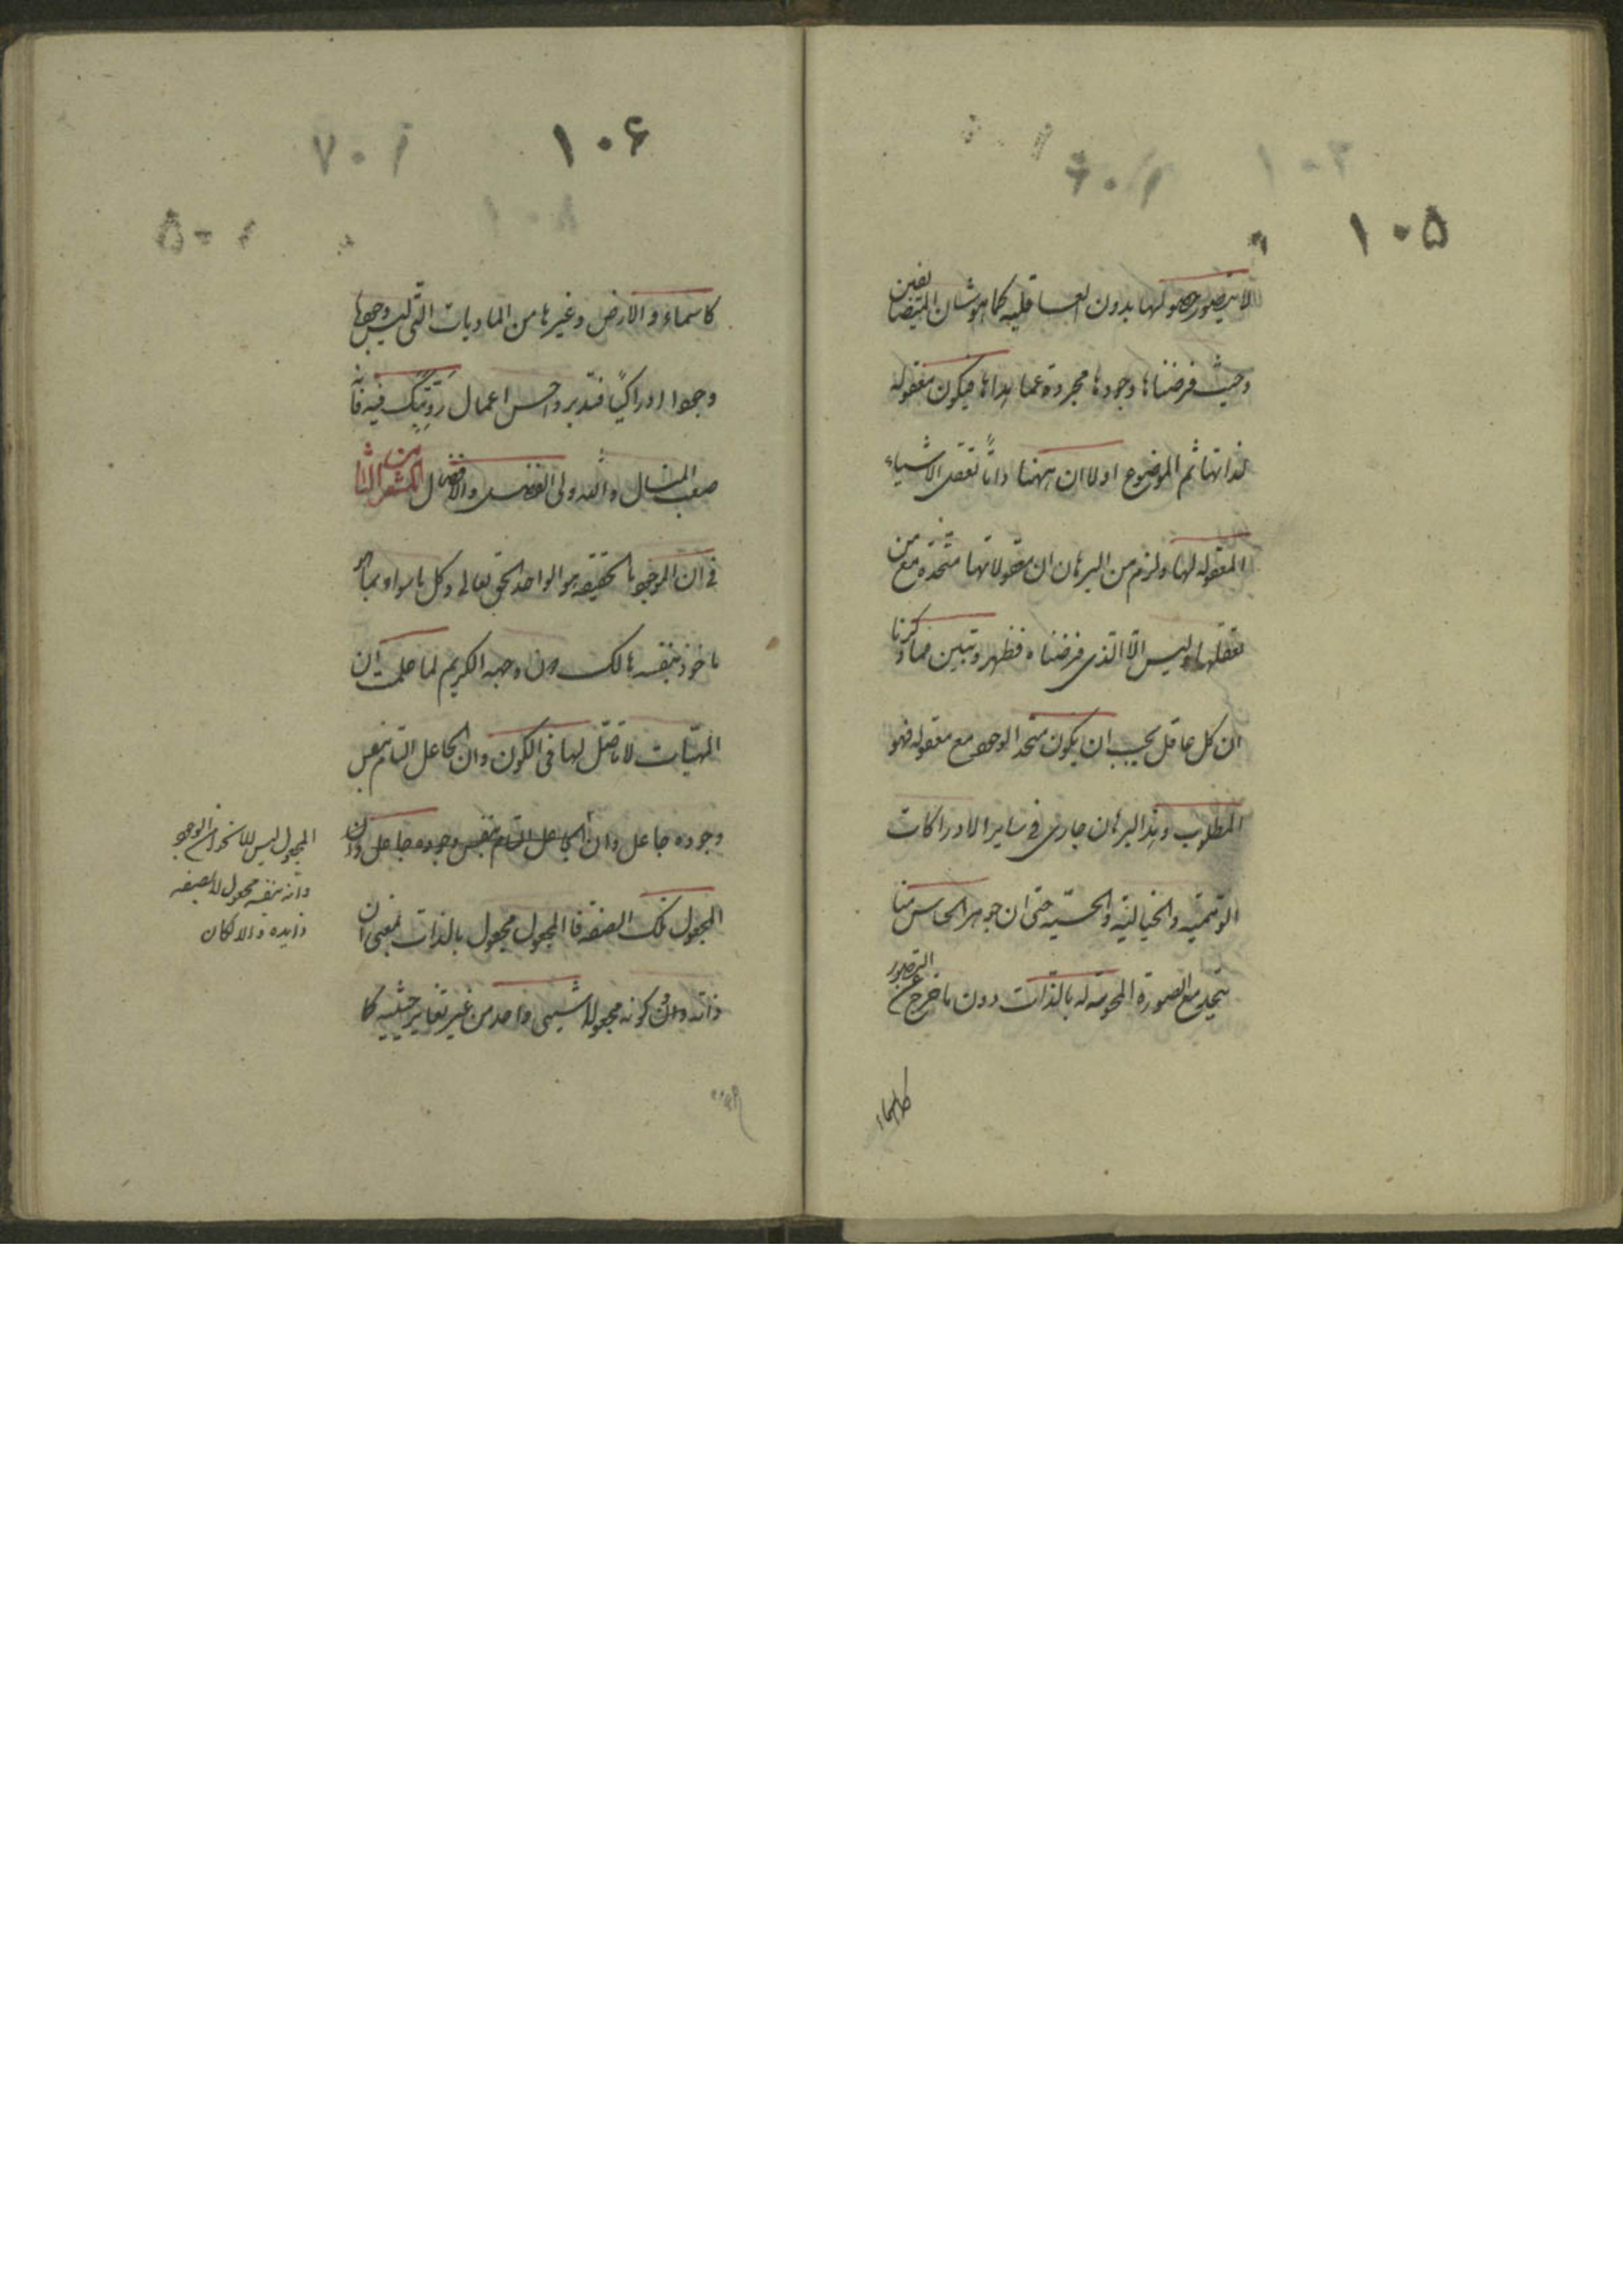 ۱۰۵
لا يتصور حصولها بدون العاقلية كما هو شان المتضايفين
وحيث فرضنا وجودها مجردة عما عداها فيكون معقوله
لذاتها ثم الموضوع اولا ان ههنا ذاتا تعقل الاشياء
المعقوله لها ولزم من البرهان ان معقولاتها متحدة مع من
تعقلها وليس الا الذى فرضناه فظهر وتبين مما ذكرنا
ان كل عاقل يجب ان يكون متحد الوجود مع معقوله فهو
المطلوب وهذا البرهان جارى فى ساير الادراكات
الوهمية والخيالية والحسية حتى ان جوهر الحاس منا
يتحد مع الصورة المحسوسة له بالذات دون ما خرج عن التصور
كالسماء
۱۰۶
۱۰۷
كاسماء والارض وغيرها من الماديات التى ليس وجودها
وجودا ادراكيا فتدبر واحسن اعمال رويتك فيه فانه
صعب المنال والله ولى الفضل والافضال المشعر الثامن
فى ان الموجود بالحقيقه هو الواحد الحق تعالى وكل ما سواه بما هو
ماخوذ بنفسه هالك دون وجهه الكريم لما علمت ان
المهيات لا تاصل لها فى الكون وان الجاعل التام بنفس
وجوده جاعل وان الجاعل التام بنفس وجوده جاعل وان
المجعول تلك الصفة فالمجعول مجعول بالذات بمعنى ان
ذاته وان كونه مجعولا شيئى واحد من غير تغاير حيثيه كما
المجعول ليس الا نحوا من الوجود
وانه بنفسه مجعول لا بصفه
زايده والا لكان